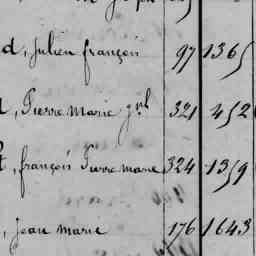 d, Julien françois 97 1365
, Pierre Marie Jph 321 452
t, françois Pierre marie 324 1359
, Jean Marie 176 1643